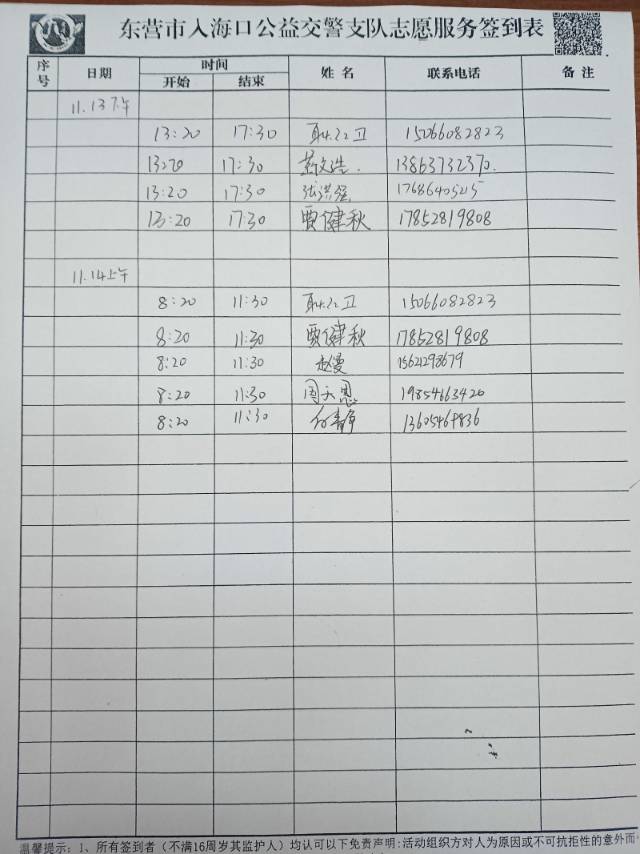 东营市入海口公益交警支队志愿服务签到表
序号 日期 时间 姓名 联系电话 备注
开始 结束
11.13下午
13:20 17:30 耿红卫 15066082823
13:20 17:30 文浩 13863732370
13:20 17:30 张洪强 17686405215
13:20 17:30 贾健秋 17852819808
11.14上午
8:20 11:30 耿红卫 15066082823
8:20 11:30 贾健秋 17852819808
8:20 11:30 赵曼 15621298679
8:20 11:30 周天恩 19854663420
8:20 11:30 付静 13605464836
温馨提示：1、所有签到者（不满16周岁其监护人）均认可以下免责声明：活动组织方对人为原因或不可抗拒性的意外而